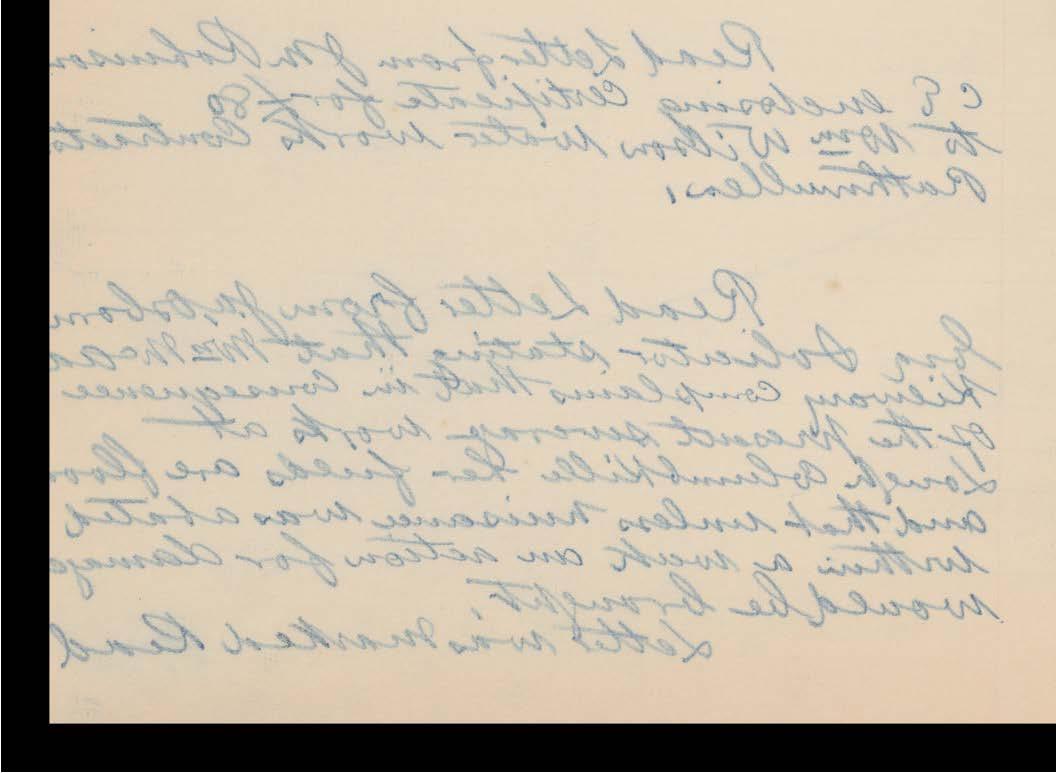 Read Letter from J M Robinson
C E enclosing Certificate for £ 80
to Wm Wilson Water Works Contractor
Rathmullen.
Read Letter from Jas Osborn
Jnr Solicitor stating that Mrs
Kilwary complains that in Consequence
of the present sewerage works at
Lough Columbkille her fields are
and that unless nuisance was abated
within a week an action for damage
would be brought.
Letter was marked Read